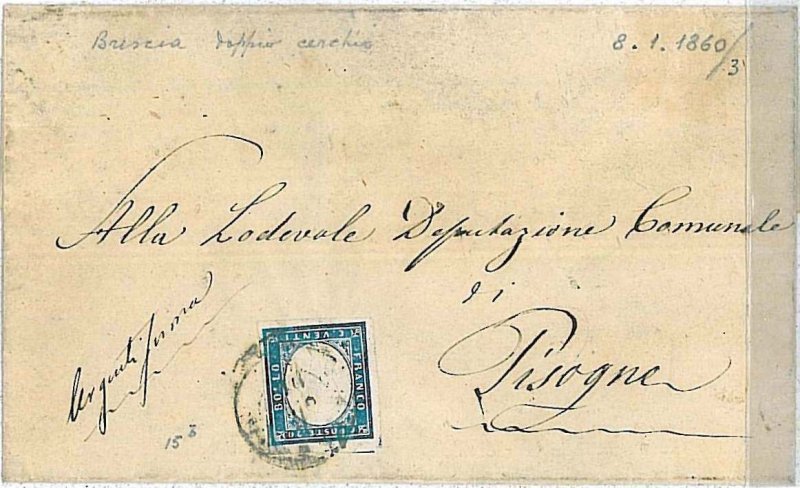 Brescia doppio cerchio 8.1.1860/3
Alla Lodevole Deputazione Comunale
di
Pisogne
Urgentissima
C. VENTI
FRANCO
C. POSTE 20
BOLLO
15 8